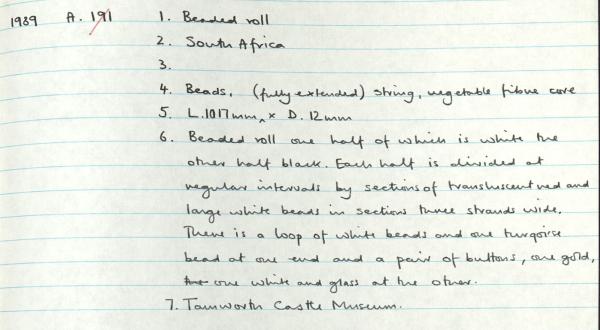 1989 A. 191 1. Beaded roll
2. South Africa
3.
4. Beads, (fully extended) string, vegetable fibre core
5. L.1017mm, x D. 12mm
6. Beaded roll one half of which is white the
other half black. Each half is divided at
regular intervals by sections of transluscent red and
large white beads in sections three strands wide.
There is a loop of white beads and one turqoise
bead at one end and a pair of buttons, one gold,
one white and glass at the other.
7. Tamworth Castle Museum.